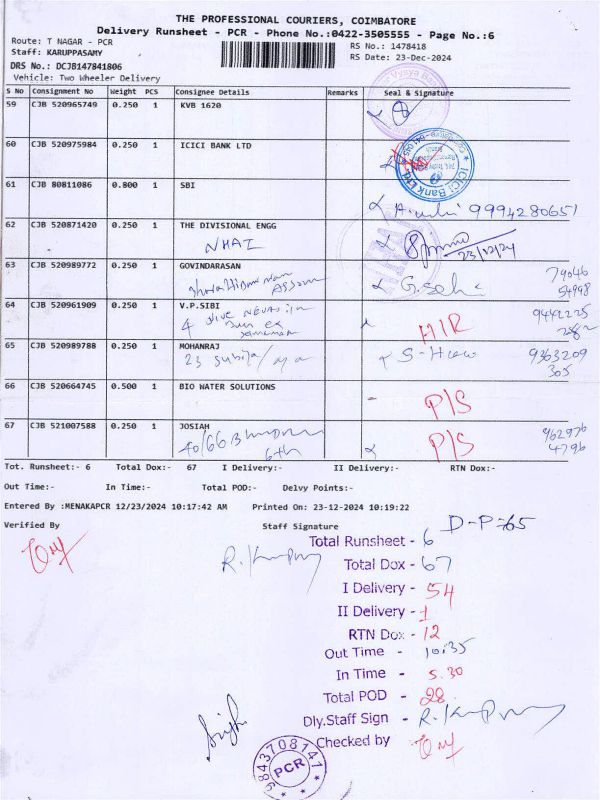 THE PROFESSIONAL COURIERS, COIMBATORE
Delivery Runsheet - PCR - Phone No.:0422-3505555 - Page No.:6
Route: T NAGAR - PCR
RS No.: 1478418
Staff: KARUPPASAMY
RS Date: 23-Dec-2024
DRS No.: DCJB147841806
Vehicle: Two Wheeler Delivery
S No Consignment No Weight PCS Consignee Details Remarks Seal & Signature
59 CJB 520965749 0.250 1 KVB 1620
60 CJB 520975984 0.250 1 ICICI BANK LTD
ICICI Bank Ltd
61 CJB 80811086 0.800 1 SBI
9994280651
62 CJB 520871420 0.250 1 THE DIVISIONAL ENGG
NHAI
23/12/24
63 CJB 520989772 0.250 1 GOVINDARASAN
79046
54998
64 CJB 520961909 0.250 1 V.P.SIBI
4
HIR
9442225
282
65 CJB 520989788 0.250 1 MOHANRAJ
23
9363209
305
66 CJB 520664745 0.500 1 BIO WATER SOLUTIONS
P/S
67 CJB 521007588 0.250 1 JOSIAH
40/66
6th
P/S
962976
4796
Tot. Runsheet:- 6 Total Dox:- 67 I Delivery:- II Delivery:- RTN Dox:-
Out Time:- In Time:- Total POD:- Delvy Points:-
Entered By :MENAKAPCR 12/23/2024 10:17:42 AM Printed On: 23-12-2024 10:19:22
Verified By Staff Signature
D-P-65
Total Runsheet - 6
Total Dox - 67
I Delivery - 54
II Delivery - 1
RTN Dox - 12
Out Time - 10:35
In Time - 5.30
Total POD - 28
Dly.Staff Sign -
Checked by
9843708147
PCR